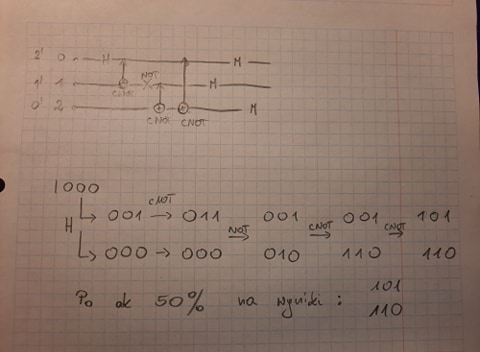 2' 0 H M
1' 1 CNOT NOT M
0' 2 CNOT CNOT M
1000
H
001 CNOT → 011 NOT → 001 CNOT → 001 CNOT → 101
000 → 000 010 110 110
Po ok 50% na wyniki: 101
110